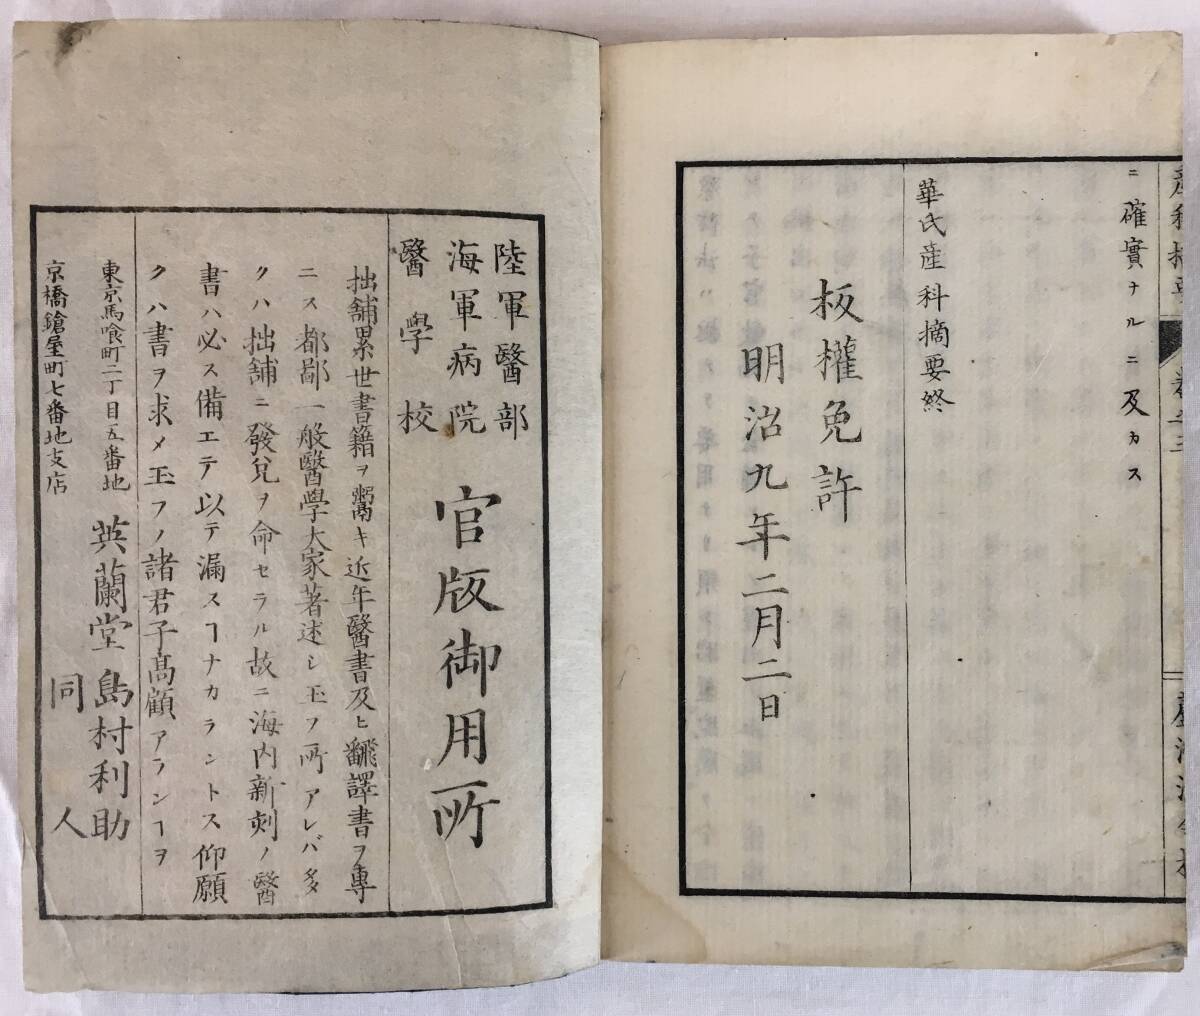 ニ確實ナルニ及カス
華氏産科摘要終
板權免許
明治九年二月二日
陸軍醫部
海軍病院
醫學校
官版御用所
拙舖累世書籍ヲ鬻キ近年醫書及ヒ飜譯書ヲ專
ニス都鄙一般醫學大家著述シ玉フ所アレバ多
クハ拙舖ニ發兌ヲ命セラル故ニ海内新刻ノ醫
書ハ必ス備エテ以テ漏スヿナカラントス仰願
クハ書ヲ求メ玉フノ諸君子高顧アランヿヲ
東京馬喰町二丁目五番地 英蘭堂 島村利助
京橋鎗屋町七番地支店 同人